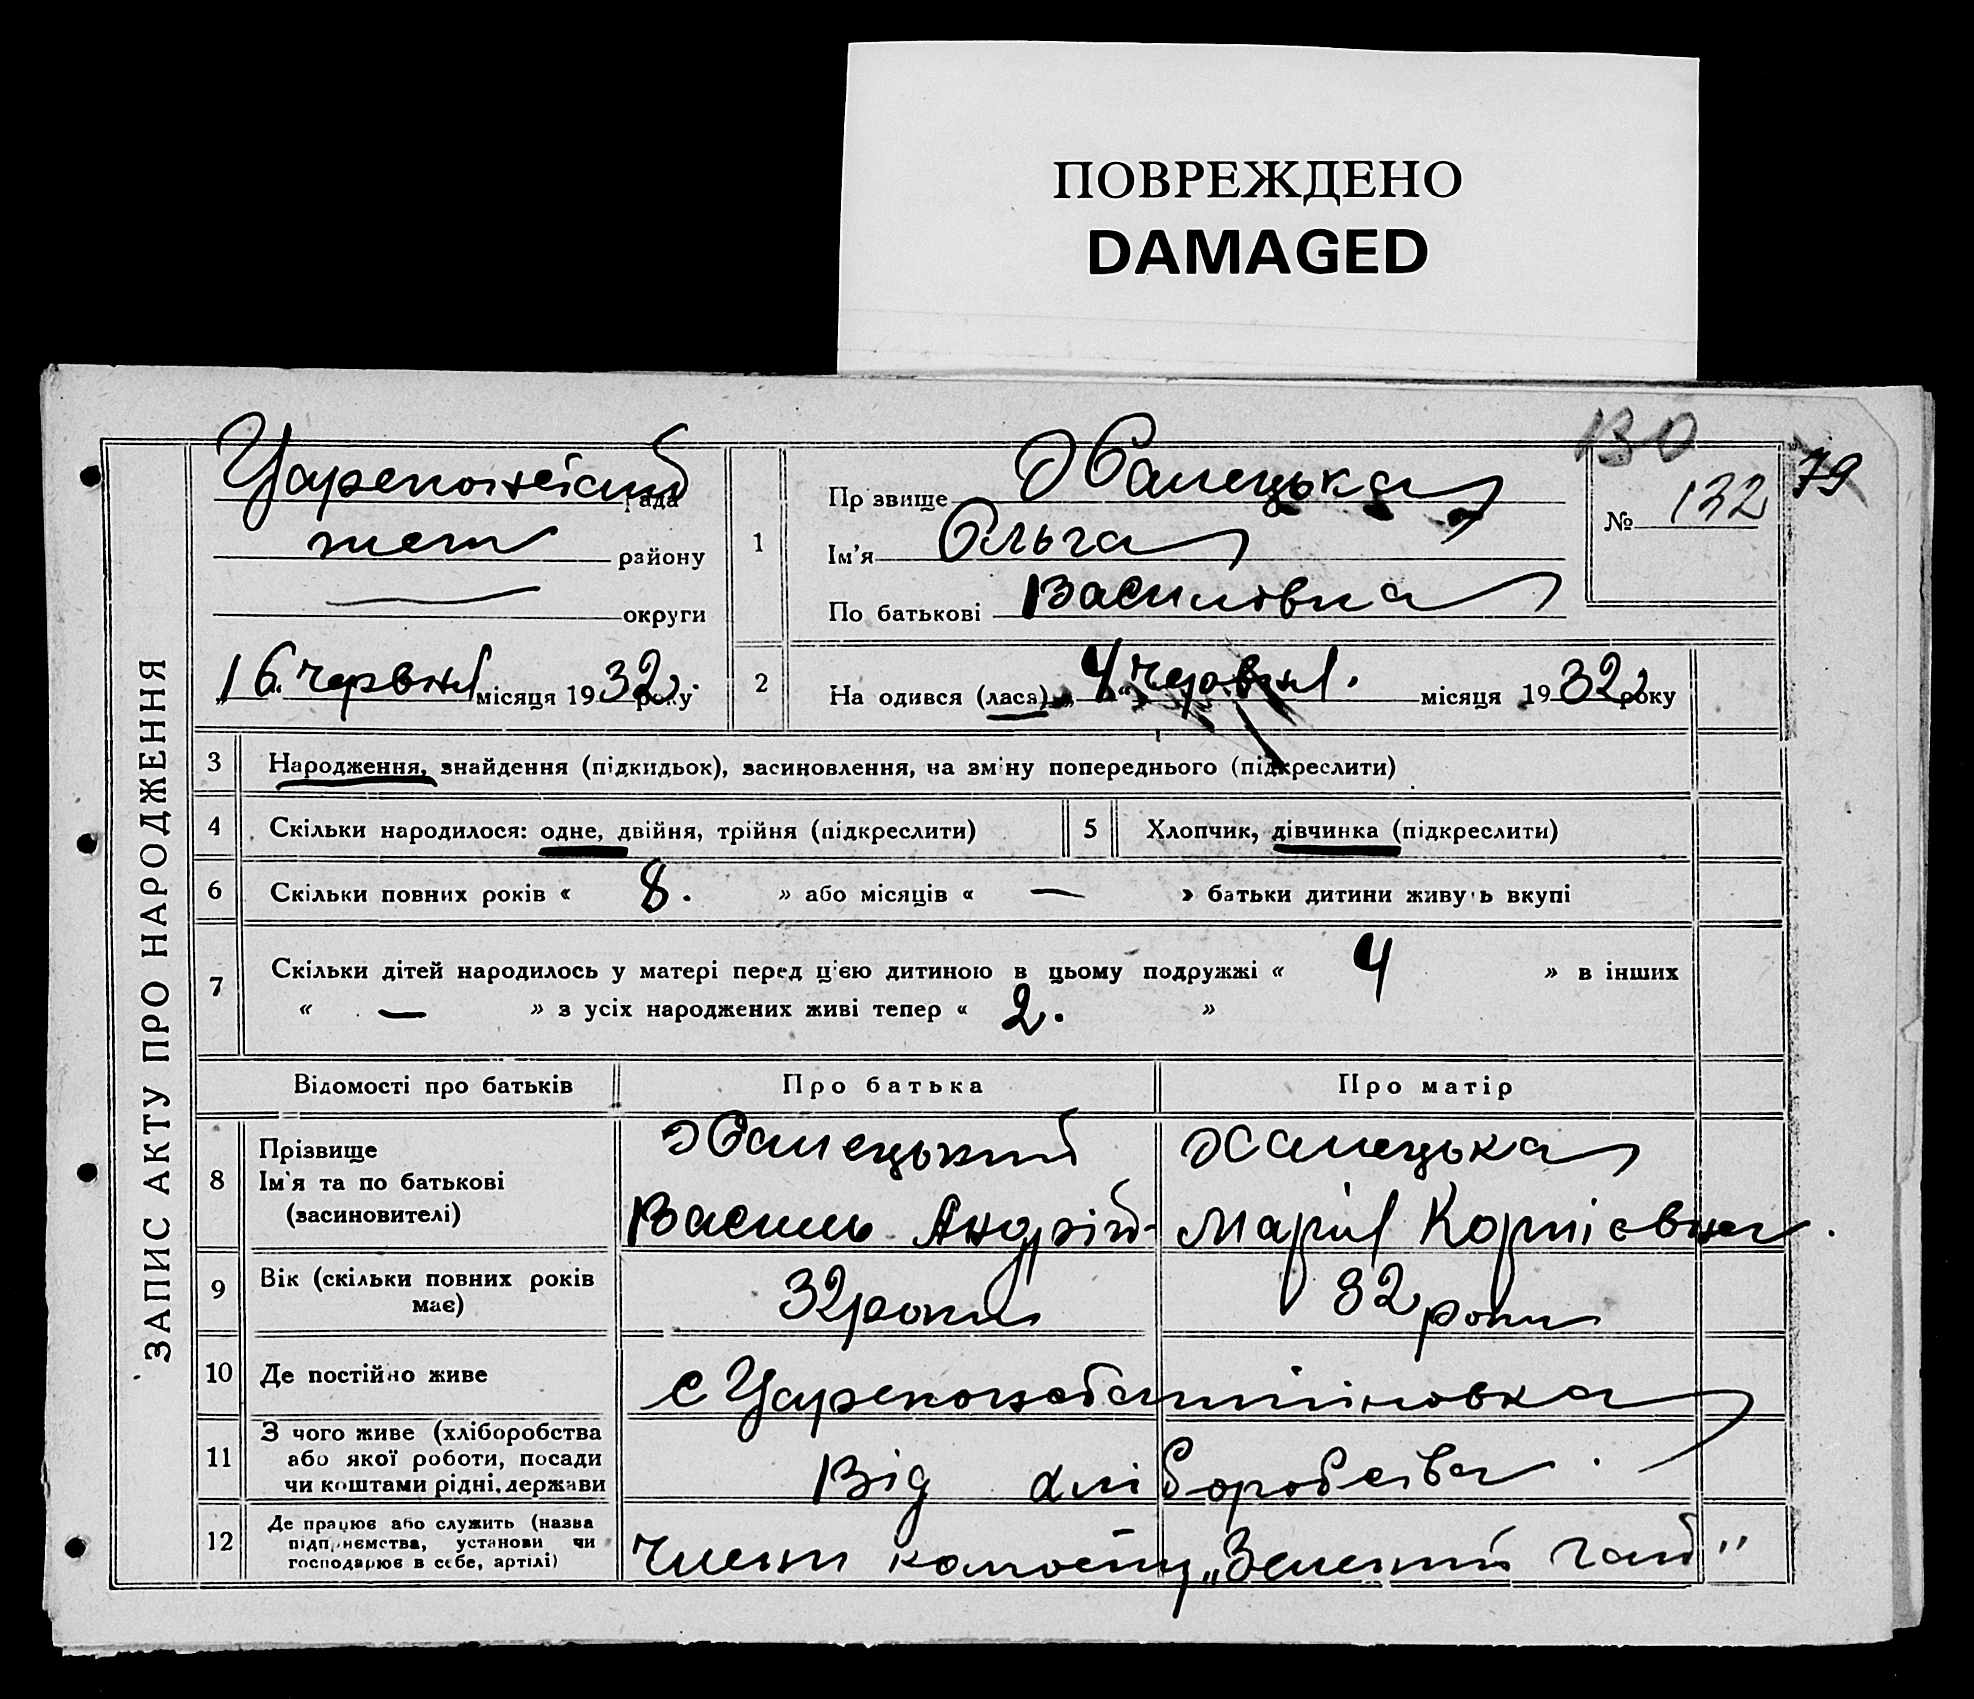 ПОВРЕЖДЕНО
DAMAGED
130
79
ЗАПИС АКТУ ПРО НАРОДЖЕННЯ
рада
району
округи
„16“ червня місяця 1932 року
1
Прізвище Халецька
Ім’я Ольга
По батькові Василівна
№ 132
2
На одився (лася) „4“ червня. місяця 1932 року
3 Народження, знайдення (підкидьок), засиновлення, на зміну попереднього (підкреслити)
4 Скільки народилося: одне, двійня, трійня (підкреслити)
5 Хлопчик, дівчинка (підкреслити)
6 Скільки повних років « 8. » або місяців « — » батьки дитини живуть вкупі
7 Скільки дітей народилось у матері перед ц'єю дитиною в цьому подружжі « 4 » в інших
« — » з усіх народжених живі тепер « 2. »
Відомості про батьків Про батька Про матір
8 Прізвище
Ім'я та по батькові
(засиновителі)
Халецький
Василь Андрій-
Халецька
Марія Корнієвна.
9 Вік (скільки повних років
має)
32 роки 32 роки
10 Де постійно живе
с Цареконстантіновка
11 З чого живе (хліборобства
або якої роботи, посади
чи коштами рідні, держави
Від хліборобства.
12 Де працює або служить (назва
підприємства, установи чи
господарює в себе, артілі)
Члени колгоспу „Зелений гай"